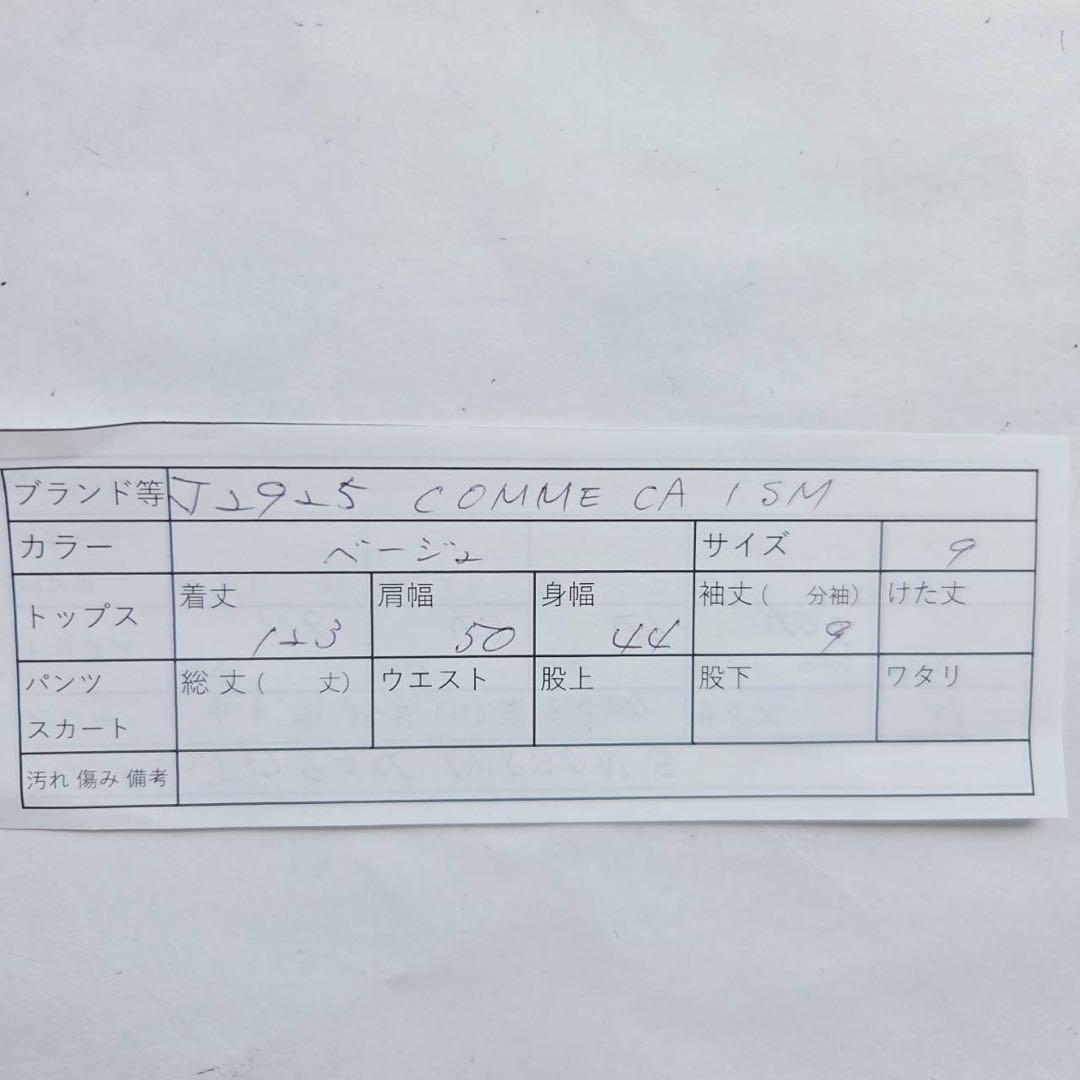 ブランド等 J2925 COMME CA ISM
カラー ベージュ サイズ 9
トップス 着丈 123 肩幅 50 身幅 44 袖丈( 分袖) 9 けた丈
パンツ スカート 総丈( 丈) ウエスト 股上 股下 ワタリ
汚れ 傷み 備考